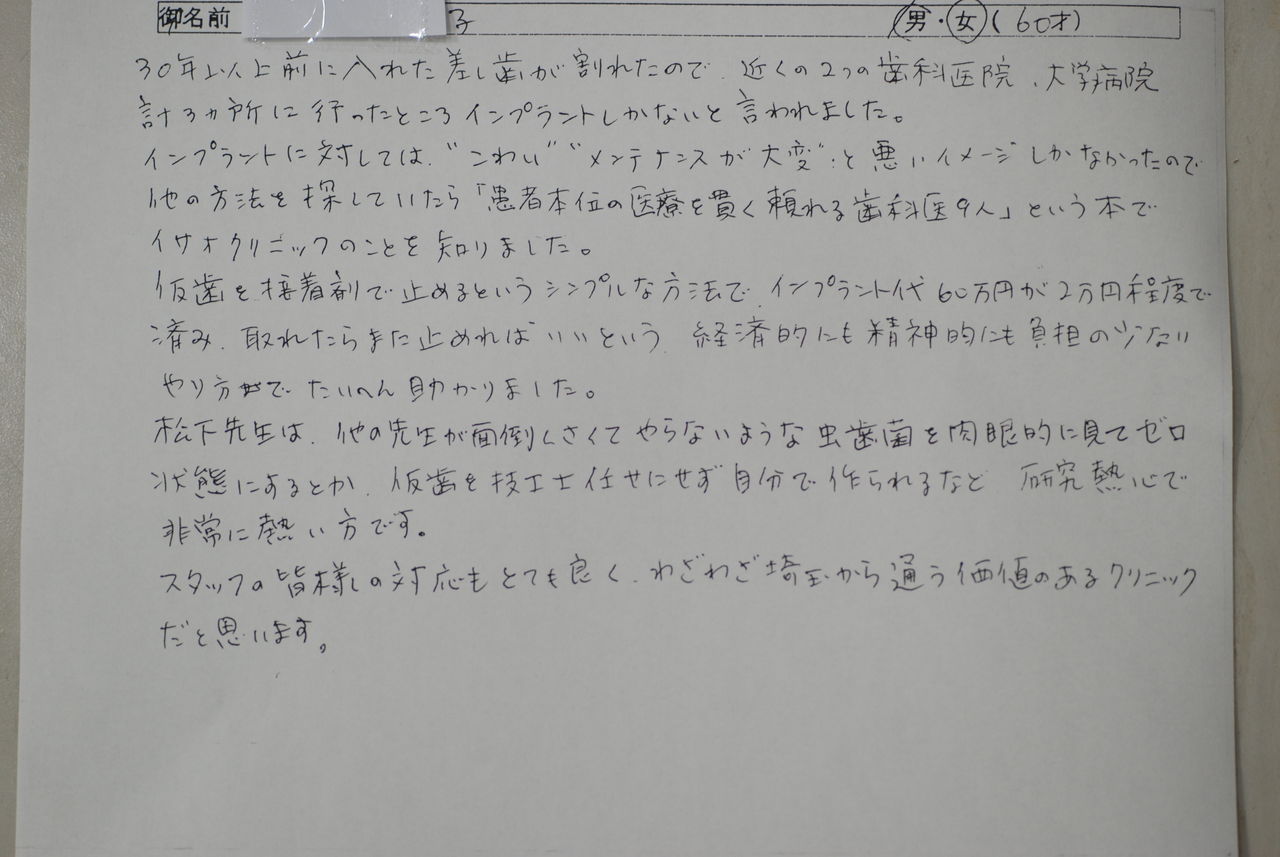 御名前 子 男・女(60才)
30年以上前に入れた差し歯が割れたので、近くの2つの歯科医院、大学病院
計3ヵ所に行ったところインプラントしかないと言われました。
インプラントに対しては、"こわい" "メンテナンスが大変"と悪いイメージしかなかったので
他の方法を探していたら「患者本位の医療を貫く頼れる歯科医9人」という本で
イサオクリニックのことを知りました。
仮歯を接着剤で止めるというシンプルな方法で、インプラント代60万円が2万円程度で
済み、取れたらまた止めればいいという、経済的にも精神的にも負担の少ない
やり方でたいへん助かりました。
松下先生は、他の先生が面倒くさくてやらないような虫歯菌を肉眼的に見てゼロ
状態にするとか、仮歯を技工士任せにせず自分で作られるなど、研究熱心で
非常に熱い方です。
スタッフの皆様の対応もとても良く、わざわざ埼玉から通う価値のあるクリニック
だと思います。